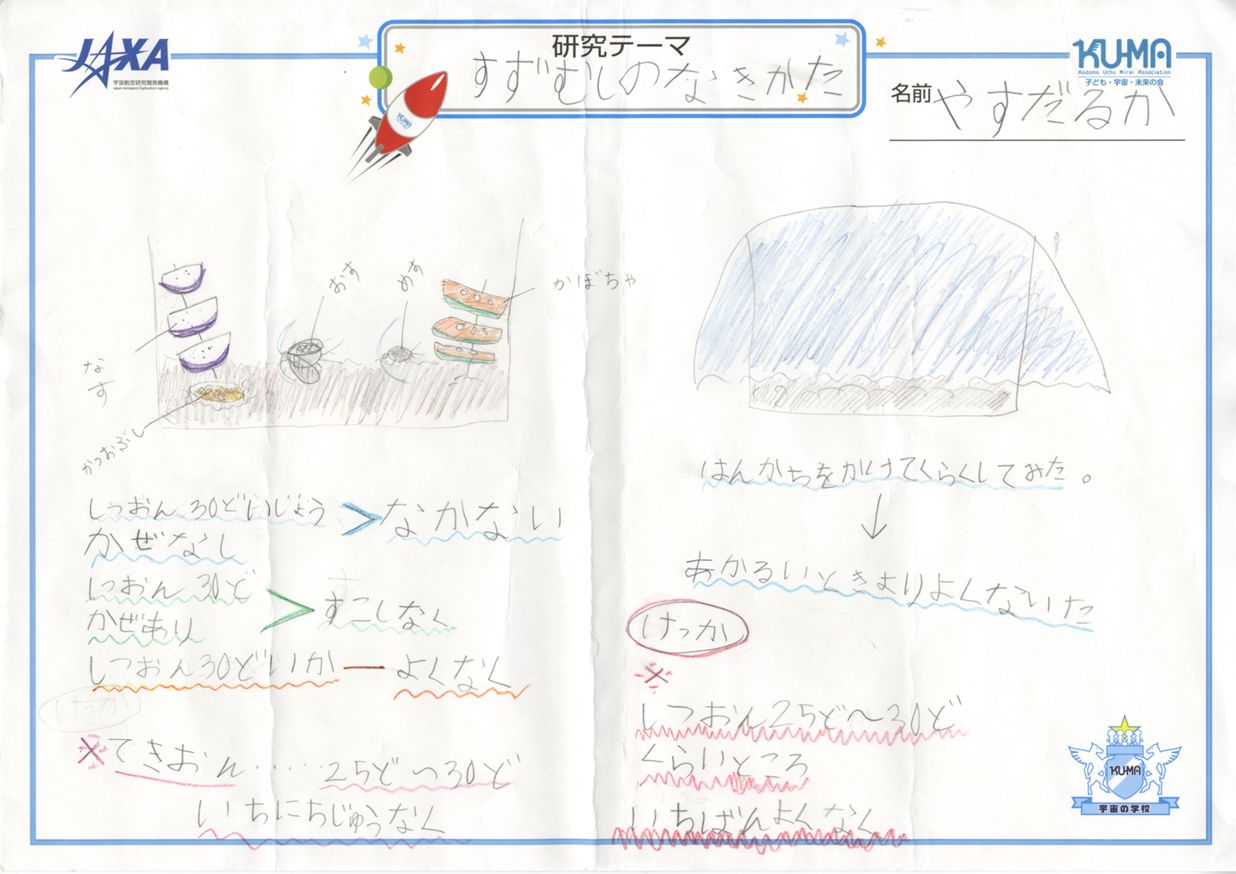 JAXA
宇宙航空研究開発機構
Japan Aerospace Exploration Agency
研究テーマ
すずむしのなきかた
KUMA
KU-MA
Kodomo Uchu Mirai Association
子ども・宇宙・未来の会
名前 やすだるか
おす
めす
かぼちゃ
なす
かつおぶし
しつおん30どいじょう
かぜなし
> なかない
しつおん30ど
かぜあり
> すこしなく
しつおん30どいか ー よくなく
けっか
※てきおん・・・・・25ど〜30ど
いちにちじゅうなく
はんかちをかけてくらくしてみた。
↓
あかるいときよりよくないた
けっか
※
しつおん25ど〜30ど
くらいところ
いちばんよくなく
KU-MA
宇宙の学校